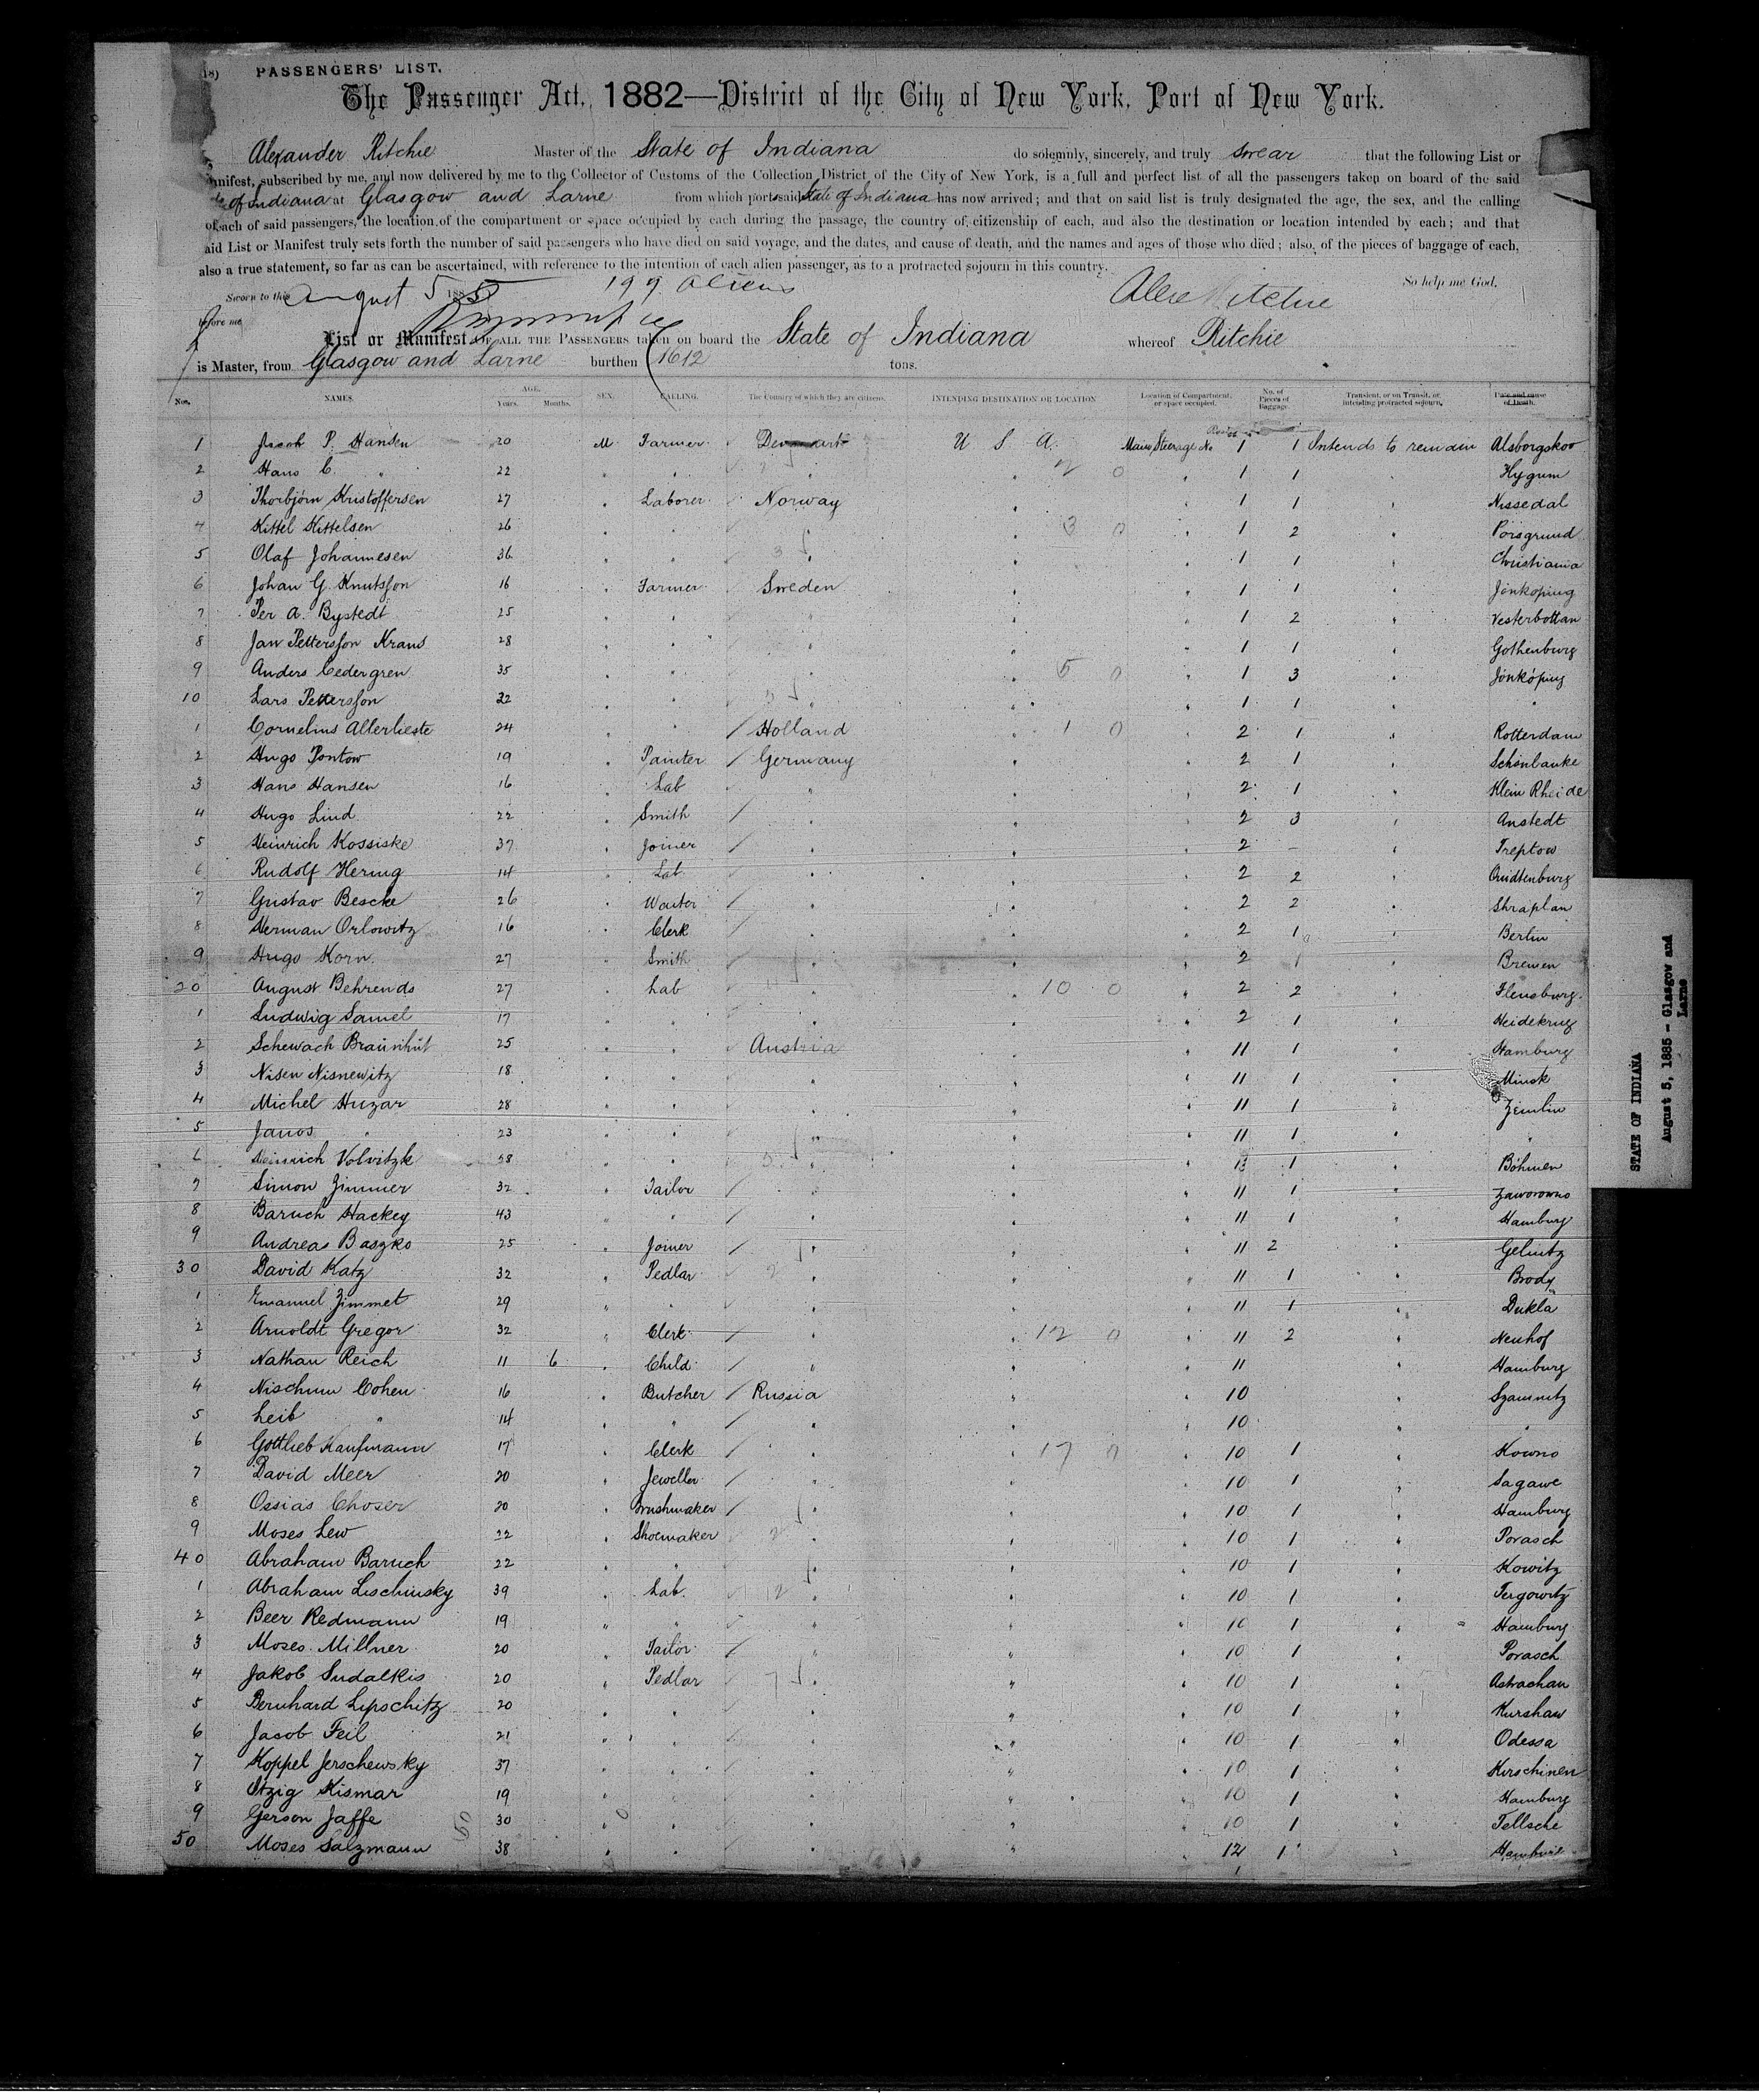 18)
PASSENGERS' LIST.
The Passenger Act, 1882—District of the City of New York, Port of New York.
Alexander Ritchie Master of the State of Indiana do solemnly, sincerely, and truly swear that the following List or
nifest, subscribed by me, and now delivered by me to the Collector of Customs of the Collection District of the City of New York, is a full and perfect list of all the passengers taken on board of the said
of Indiana at Glasgow and Larne from which port said State of Indiana has now arrived; and that on said list is truly designated the age, the sex, and the calling
of each of said passengers, the location of the compartment or space occupied by each during the passage, the country of citizenship of each, and also the destination or location intended by each; and that
aid List or Manifest truly sets forth the number of said passengers who have died on said voyage, and the dates, and cause of death, and the names and ages of those who died; also, of the pieces of baggage of each,
also a true statement, so far as can be ascertained, with reference to the intention of each alien passenger, as to a protracted sojourn in this country. So help me God.
Sworn to this August 5 1885 199 aliens Alex Ritchie
before me
List or Manifest OF ALL THE PASSENGERS taken on board the State of Indiana whereof Ritchie
is Master, from Glasgow and Larne burthen 1612 tons.
Nos. NAMES. AGE. Years. Months. SEX. CALLING. The Country of which they are citizens. INTENDING DESTINATION OR LOCATION Location of Compartment or space occupied. No. of Pieces of Baggage. Transient, or on Transit, or intending protracted sojourn. Date and cause of Death.
1 Jacob P. Hansen 20 M Farmer Denmark U S A. Main Steerage No 1 1 Intends to remain Alsborgskov
2 Hans C. " 22 " " " " 2 0 " 1 1 Hygum
3 Thorbjörn Kristoffersen 27 " Laborer Norway " 1 1 " Nissedal
4 Kittel Kittelsen 26 " " " " 3 0 " 1 2 " Porsgrund
5 Olaf Johannesen 36 " " 3 " " " 1 1 " Christiania
6 Johan G. Knutsson 16 " Farmer Sweden " " 1 1 " Jönköping
7 Per A. Bystedt 25 " " " " " 1 2 " Vesterbottan
8 Jan Pettersson Krans 28 " " " " " 1 1 " Gothenburg
9 Anders Cedergren 35 " " " " 5 0 " 1 3 " Jönköping
10 Lars Pettersson 22 " " 5 " " " 1 1 " "
1 Cornelius Allerlieste 24 " " / Holland " 1 0 " 2 1 " Rotterdam
2 Hugo Pontow 19 " Painter / Germany " " 2 1 " Schönlanke
3 Hans Hansen 16 " Lab " " " 2 1 " Klein Rheide
4 Hugo Lind 22 " Smith / " " " 2 3 " Anstedt
5 Heinrich Kossiske 37 " Joiner / " " " 2 – " Treptow
6 Rudolf Hering 14 " Lab " " " 2 2 "
7 Gustav Bescke 26 " Waiter / " " " 2 2 " Shraplan
8 Herman Orlowitz 16 " Clerk / " " " 2 1 " Berlin
9 Hugo Korn 27 " Smith / " " " 2 1 " Bremen
20 August Behrends 27 " Lab " " 10 0 " 2 2 " Flensburg
1 Ludwig Samel 17 " " " " " 2 1 " Heidekrug
2 Schewach Braünhüt 25 " " Austria " " 11 1 " Hamburg
3 Nisen Nisnewitz 18 " " " " " 11 1 " Minsk
4 Michel Huzar 28 " " " " " 11 1 " Zemlin
5 Janos " 23 " " " " " 11 1 " "
6 Heinrich Volvitzk 58 " " 5 " " " 13 1 " Böhmen
7 Simon Zimmer 32 " Tailor / " " " 11 1 " Zaworowno
8 Baruch Hackey 43 " " / " " " 11 1 " Hamburg
9 Andreas Baszko 25 " Joiner / " " " 11 2 " Gelnitz
30 David Katz 32 " Pedlar 2 " " " 11 1 " Brody
1 Emanuel Zimmet 29 " " " " " 11 1 " Dukla
2 Arnoldt Gregor 32 " Clerk / " " 12 0 " 11 2 " Neuhof
3 Nathan Reich 11 6 " Child / " " " 11 " Hamburg
4 Nischum Cohen 16 " Butcher / Russia " " 10 " Szamnitz
5 Leib " 14 " " / " " " 10 " "
6 Gottlieb Kaufmann 17 " Clerk / " " 17 0 " 10 1 " Kowno
7 David Meer 20 " Jeweller / " " " 10 1 " Sagawe
8 Ossias Choser 20 " Brushmaker / " " " 10 1 " Hamburg
9 Moses Lew 22 " Shoemaker 2 " " " 10 1 " Porasch
40 Abraham Baruch 22 " " " " " 10 1 " Kowitz
1 Abraham Lischinsky 39 " Lab. 12 " " " 10 1 " Tergowitz
2 Beer Redmann 19 " " " " " 10 1 " Hamburg
3 Moses Millner 20 " Tailor / " " " 10 1 " Porasch
4 Jakob Sudalkis 20 " Pedlar 7 " " " 10 1 " Astrachan
5 Bernhard Lipschitz 20 " " " " " 10 1 " Kurshaw
6 Jacob Feil 21 " " " " " 10 1 " Odessa
7 Koppel Jerschewsky 37 " " " " " 10 1 " Kirschinen
8 Itzig Kismar 19 " " " " " 10 1 " Hamburg
9 Gerson Jaffe 50 30 " " " " " 10 1 " Tellsche
50 Moses Salzmann 38 " " " " " 12 1 " Hamburg
STATE OF INDIANA
August 5, 1885 - Glasgow and
Larne